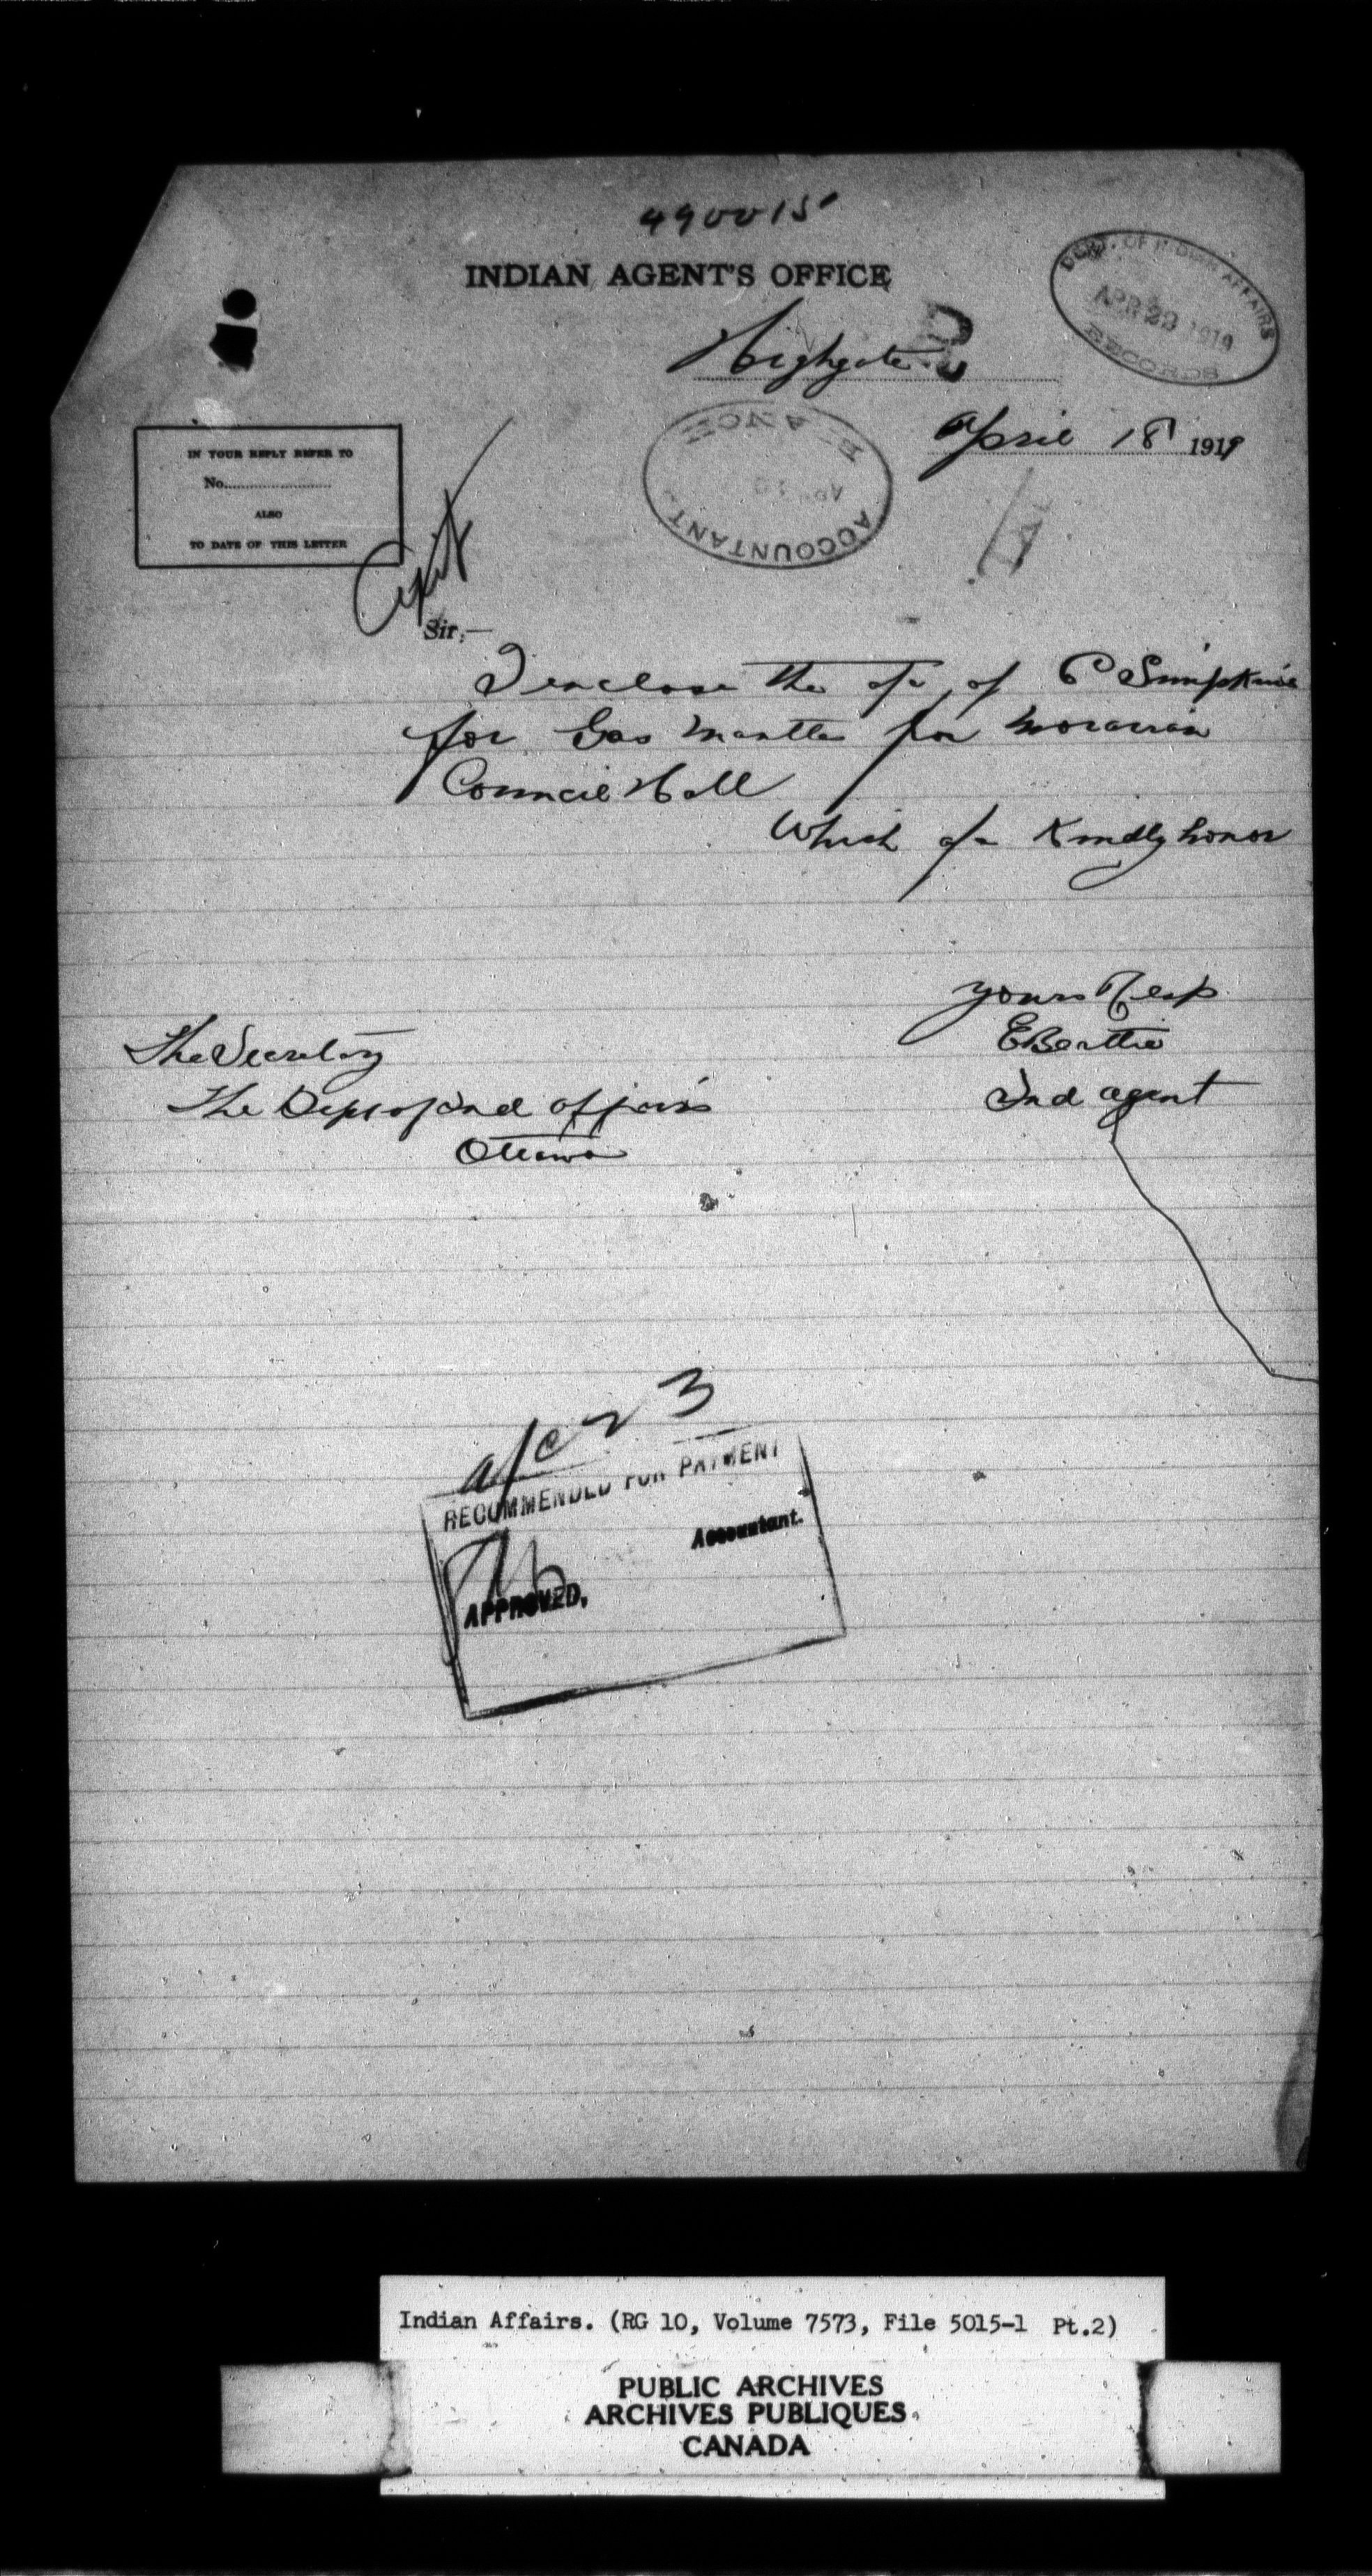 490015
INDIAN AGENT'S OFFICE
DEPT. OF INDIAN AFFAIRS
APR 22 1919
RECORDS
Highgate
R
April 18 1919
ACCOUNTANT
IN YOUR REPLY REFER TO
No.
ALSO
TO DATE OF THIS LETTER
Sir:—
I enclose the a/c of P Simpkins
for Gas mantles for Moravian
Council Hall
Which a/c Kindly honor
yours Resp
E Beattie
Ind agent
The Secretary
The Dept of Ind affairs
Ottawa
a/c 23
RECOMMENDED FOR PAYMENT
Accountant.
APPROVED,
Indian Affairs. (RG 10, Volume 7573, File 5015-1 Pt.2)
PUBLIC ARCHIVES
ARCHIVES PUBLIQUES
CANADA